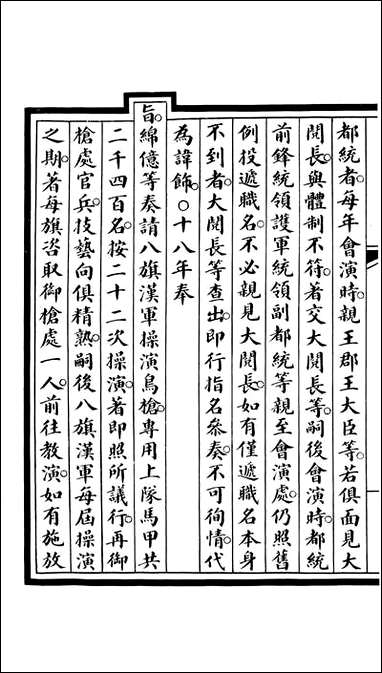 都統者。每年會演時。親王郡王大臣等。若俱面見大
閱長。與體制不符。著交大閱長等。嗣後會演時。都統
前鋒統領護軍統領副都統等親至會演處。仍照舊
例投遞職名。不必親見大閱長。如有僅遞職名本身
不到者。大閱長等查出。即行指名參奏。不可徇情代
為諱飾。○十八年奉
旨。綿億等奏請八旗漢軍操演鳥槍。專用上隊馬甲共
二千四百名。按二十二次操演。著即照所議行。再御
槍處官兵。技藝向俱精熟。嗣後八旗漢軍每屆操演
之期。著每旗咨取御槍處一人。前往教演。如有施放